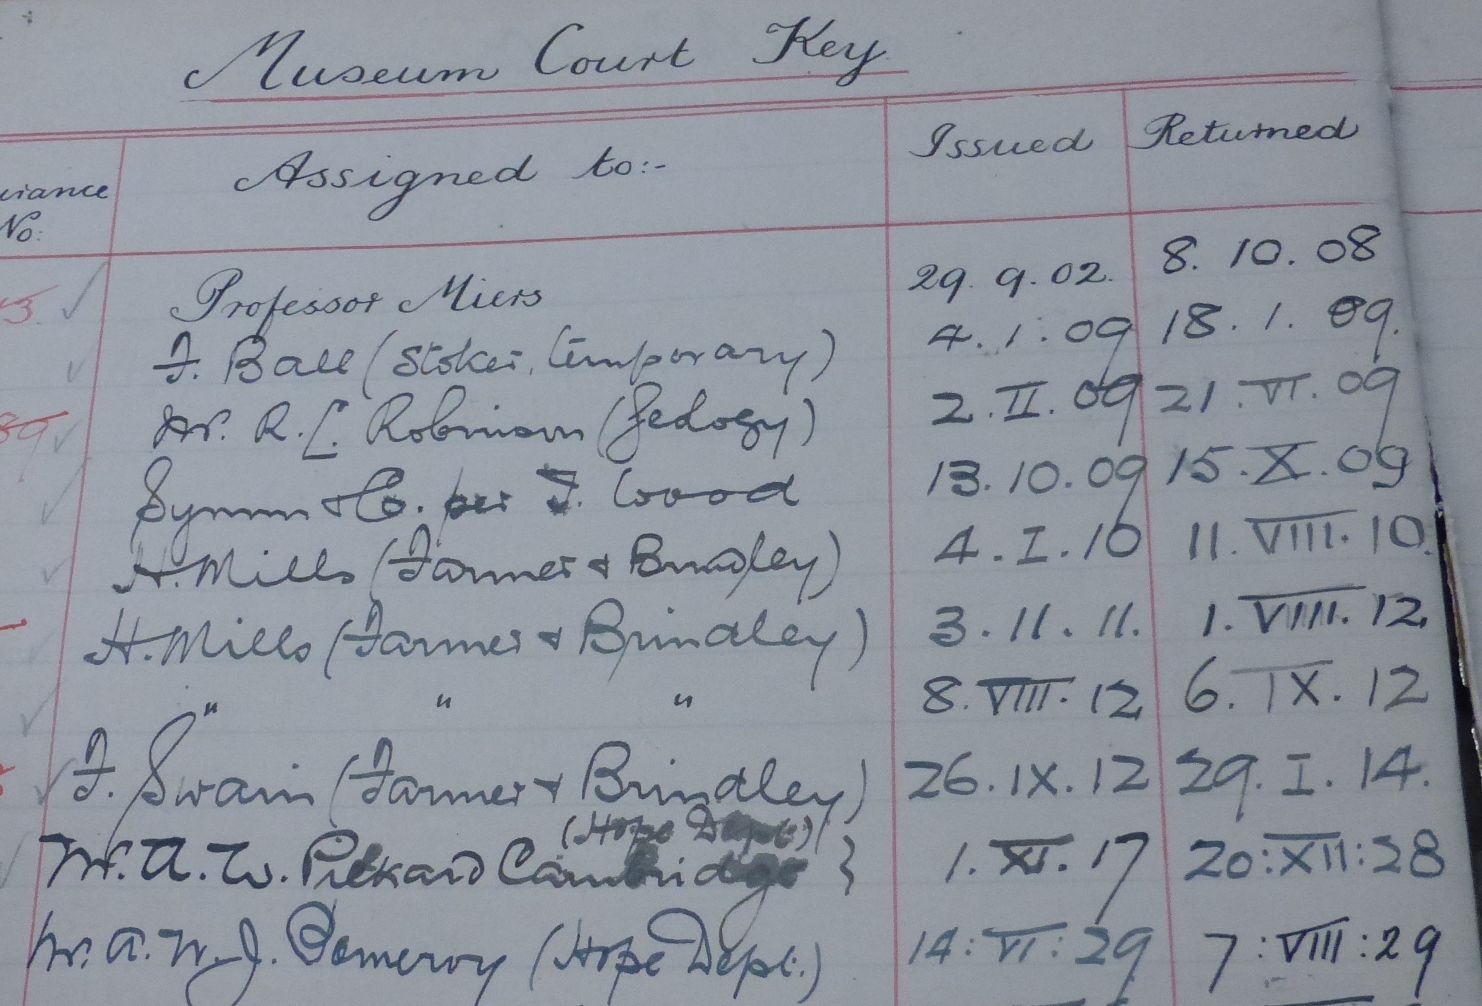 Museum Court Key
Assigned to:- Issued Returned
No:
Professor Miers 29. 9. 02. 8. 10. 08
F. Ball (Stoker, temporary) 4. 1. 09 18. 1. 09.
Mr. R. L. Robinson (Geology) 2. II. 09 21. VI. 09
Symm & Co. per F. Wood 13. 10. 09 15. X. 09
H. Mills (Farmer & Brindley) 4. I. 10 11. VIII. 10.
H. Mills (Farmer & Brindley) 3. 11. 11. 1. VIII. 12.
" " " 8. VIII. 12 6. IX. 12
F. Swain (Farmer & Brindley) 26. IX. 12 29. I. 14.
(Hope Dept.)
Mr. A. W. Pickard Cambridge } 1. XI. 17 20:XII:28
Mr. A. W. J. Pomeroy (Hope Dept.) 14:VI:29 7:VIII:29